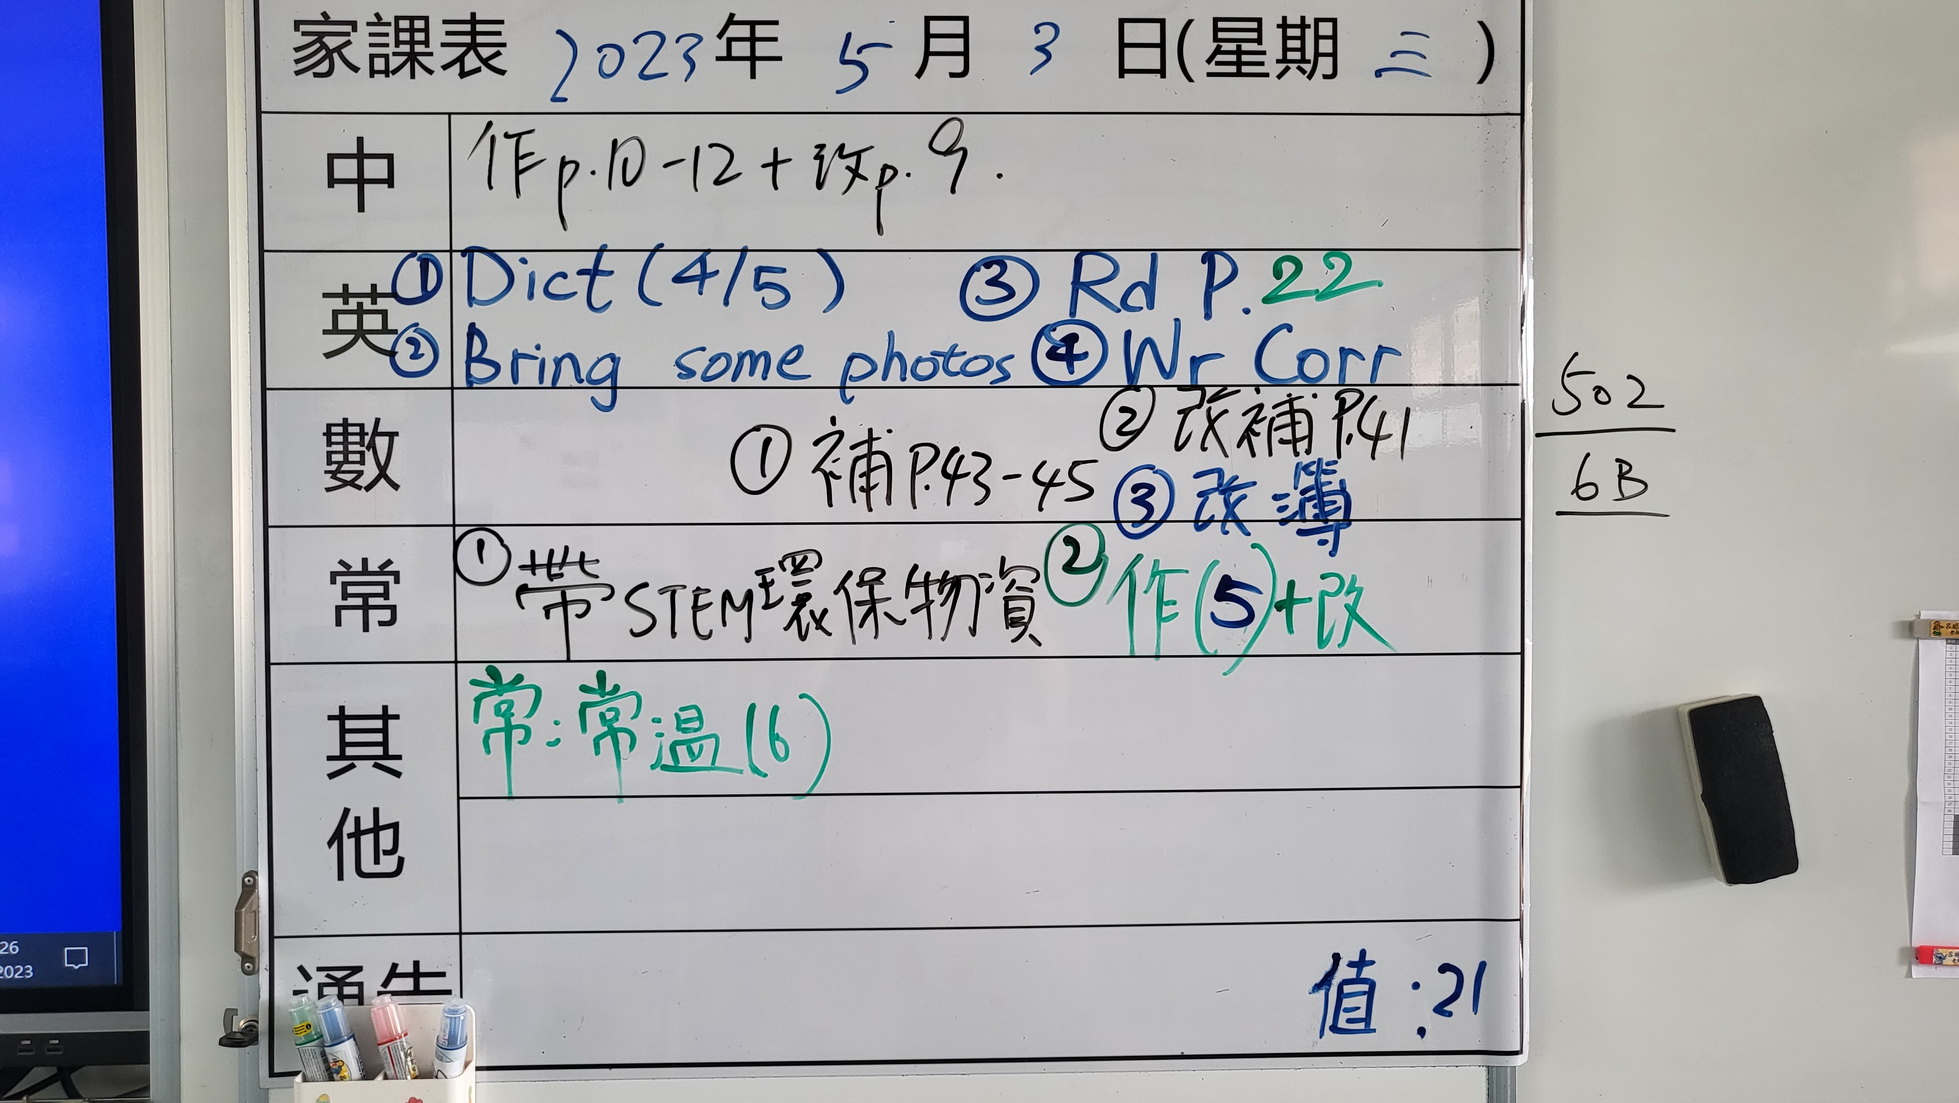 家課表 2023年 5月 3日(星期三)
中 作p.10-12+改p.9.
英 ① Dict (4/5) ③ Rd P.22
② Bring some photos ④ Wr Corr
數 ① 補P.43-45 ② 改補P.41
③ 改簿
常 ① 帶STEM環保物資 ② 作(5)+改
其他 常:常温(6)
通告 值:21
502
6B
26
2023